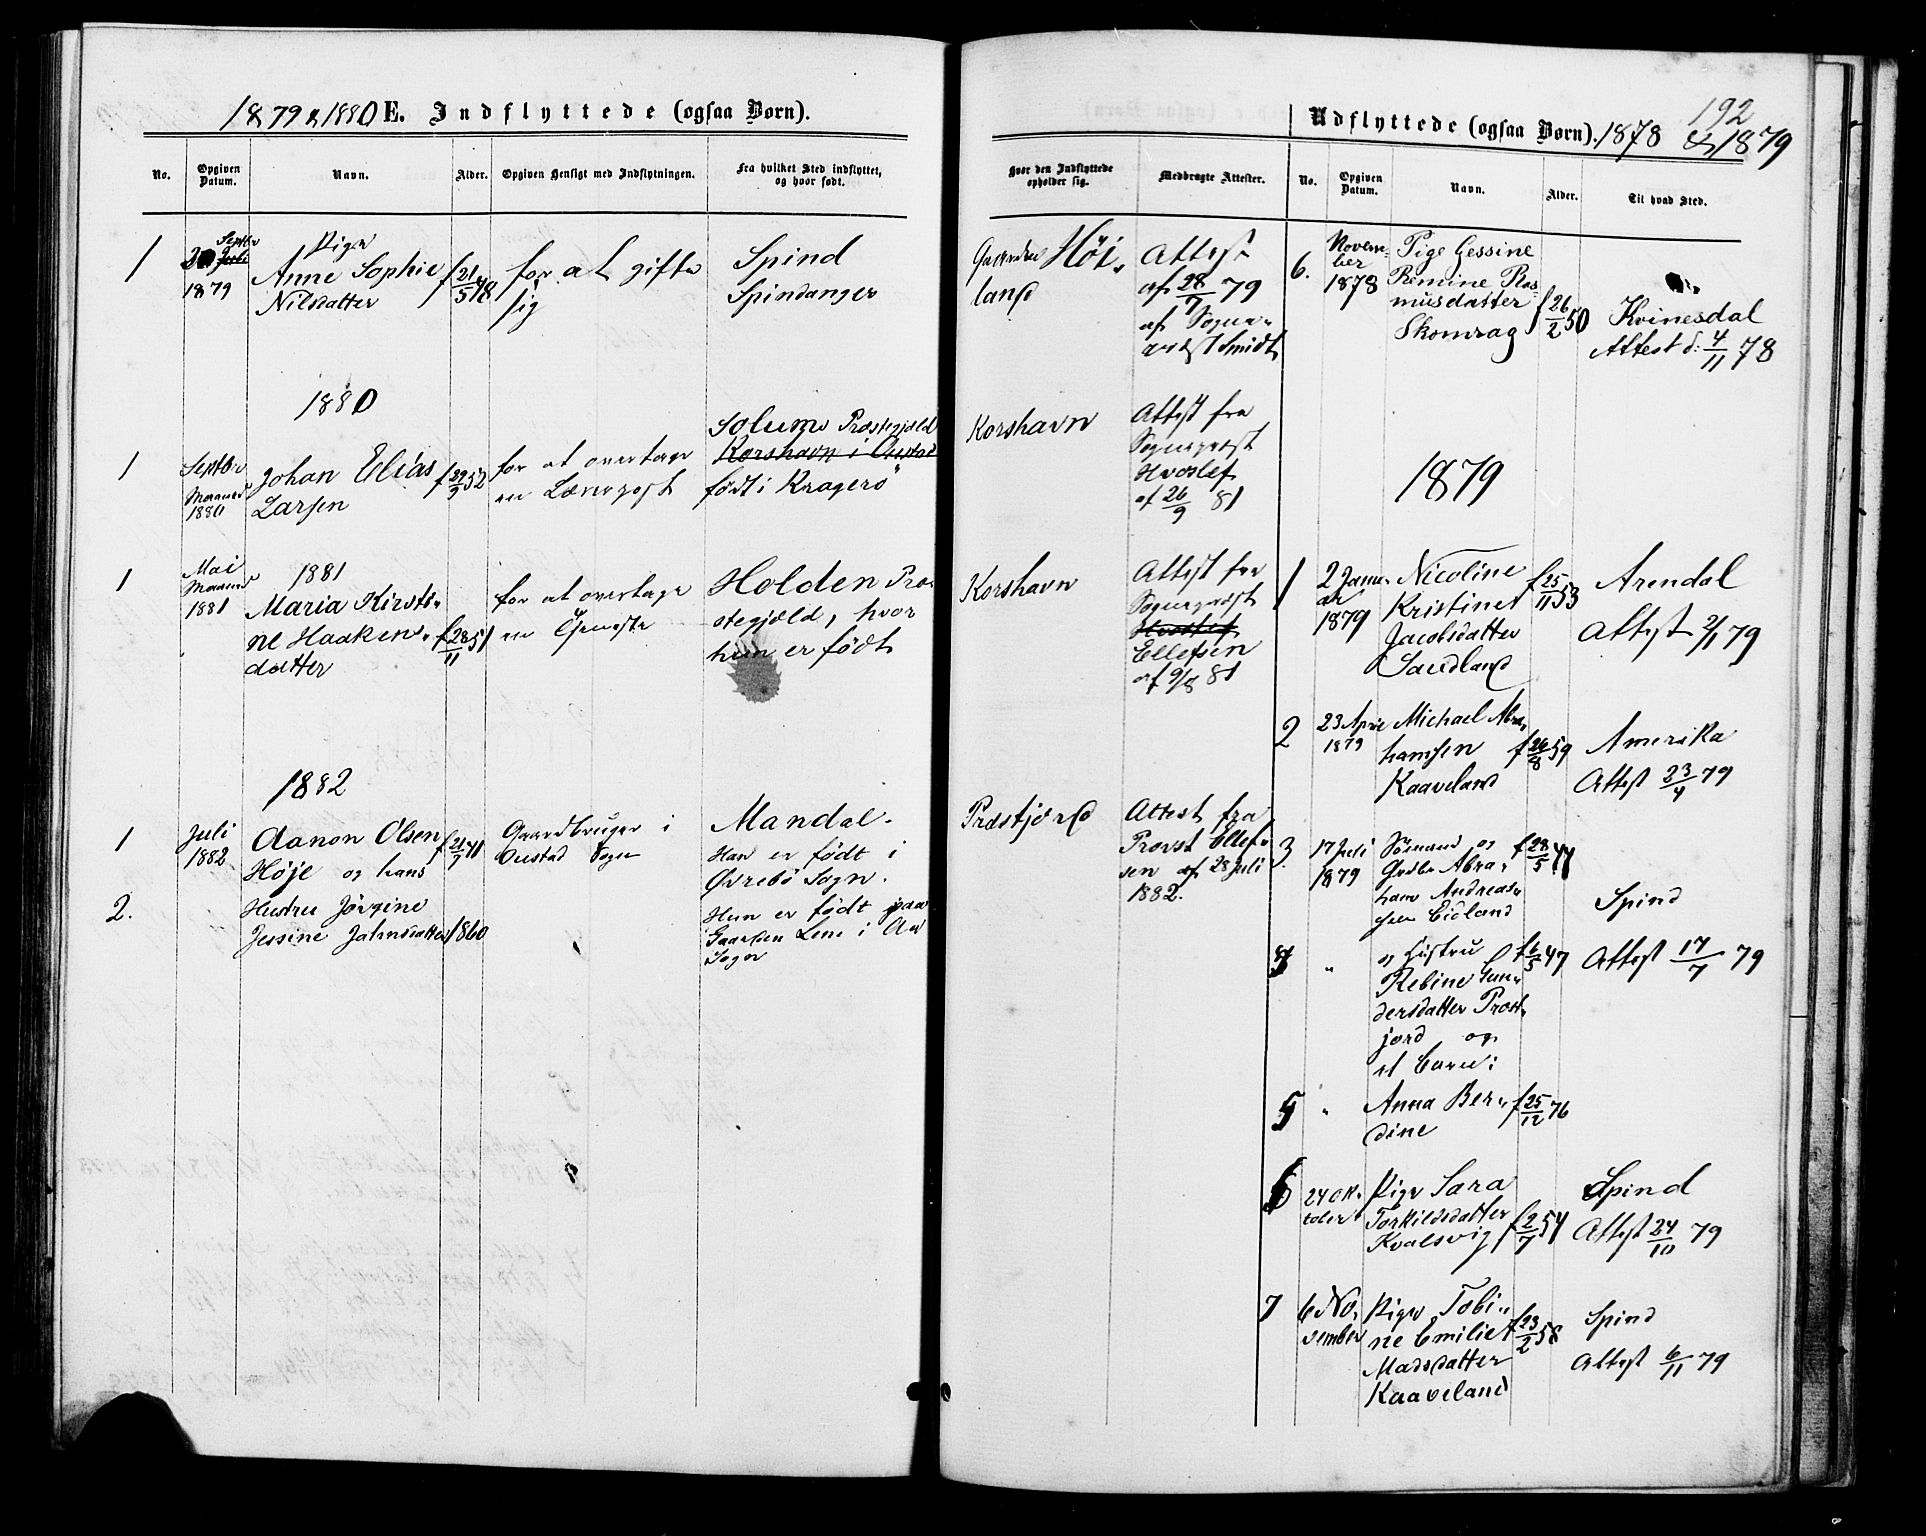 1879 & 1880 E. Indflyttede (ogsaa Børn).
No.
Opgiven Datum.
Navn.
Alder.
Opgiven Hensigt med Indflytningen.
Fra hvilket Sted indflyttet,
og hvor født.
1
Septbr
1879
Pige
Anne Sophie
Nilsdatter
f 21/5 48
for at gifte
sig
Spind
Spindanger
1880
1
Septbr
Maaned
1880
Johan Elias
Larsen
f 29/9 52
for at overtage
en Lærerpost
Solums Præstegjeld
Korshavn i Oustad
født i Kragerö
1
Mai
Maaned
1881
1881
Maria Kirsti-
ne Haaken-
datter
f 28/11 51
for at overtage
en Tjeneste
Holden Præ-
stegjeld, hvor
hun er födt
1882
1
Juli
1882
Aanon Olsen
Höje og hans
f 21/7 41
Gaardbruger i
Oustad Sogn
Mandal.
Han er födt i
Øvrebö Sogn.
2.
Hustru Jörgine
Jessine Jahnsdatter
1860
Hun er födt paa
Gaarden Lene i Au
Sogn
Udflyttede (ogsaa Børn). 1878 & 1879
192
Hvor den Indflyttede
opholder sig.
Medbragte Attester.
No.
Opgiven
Datum.
Navn.
Alder.
Til hvad Sted.
Gaarden Höi-
land
Attest
af 28/7 79
af Sogne-
præst Smidt
6.
Novem-
ber
1878
Pige Gessine
Remine Ras-
musdatter
Skomrag
f 26/2 50
Kvinesdal
Attest d: 4/11 78
Korshavn
Attest fra
Sognepræst
Hvoslef
af 26/9 81
1879
Korshavn
Attest fra
Sognepræst
Hvoslef
Ellefsen
af 9/8 81
1
2 Janu-
ar
1879
Nicoline
Kristine
Jacobsdatter
Saudland
f 25/11 53
Arendal
Attest 2/1 79
2
23 April
1879
Michael Abra-
hamsen
Kaaveland
f 26/8 59
Amerika
Attest 23/4 79
Præstjord
Attest fra
Provst Ellef-
sen af 28 Juli
1882.
3
17 Juli
1879
Sömand og
Gndbr Abra-
ham Andreas-
sen Eidland
f 28/5 41
Spind
4
"
og Hustru
Rebine Gun-
dersdatter Præst-
jord og
et Barn:
f 6/5 47
Attest 17/7 79
5
"
Anna Ber-
dine
f 25/12 76
6
24 Ok-
tober
Pige Sara
Torkildsdatter
Kvalsvig
f 2/7 54
Spind
Attest 24/10 79
7
6 No-
vember
Pige Tobi-
ne Emilie
Madsdatter
Kaaveland
f 23/2 58
Spind
Attest 6/11 79